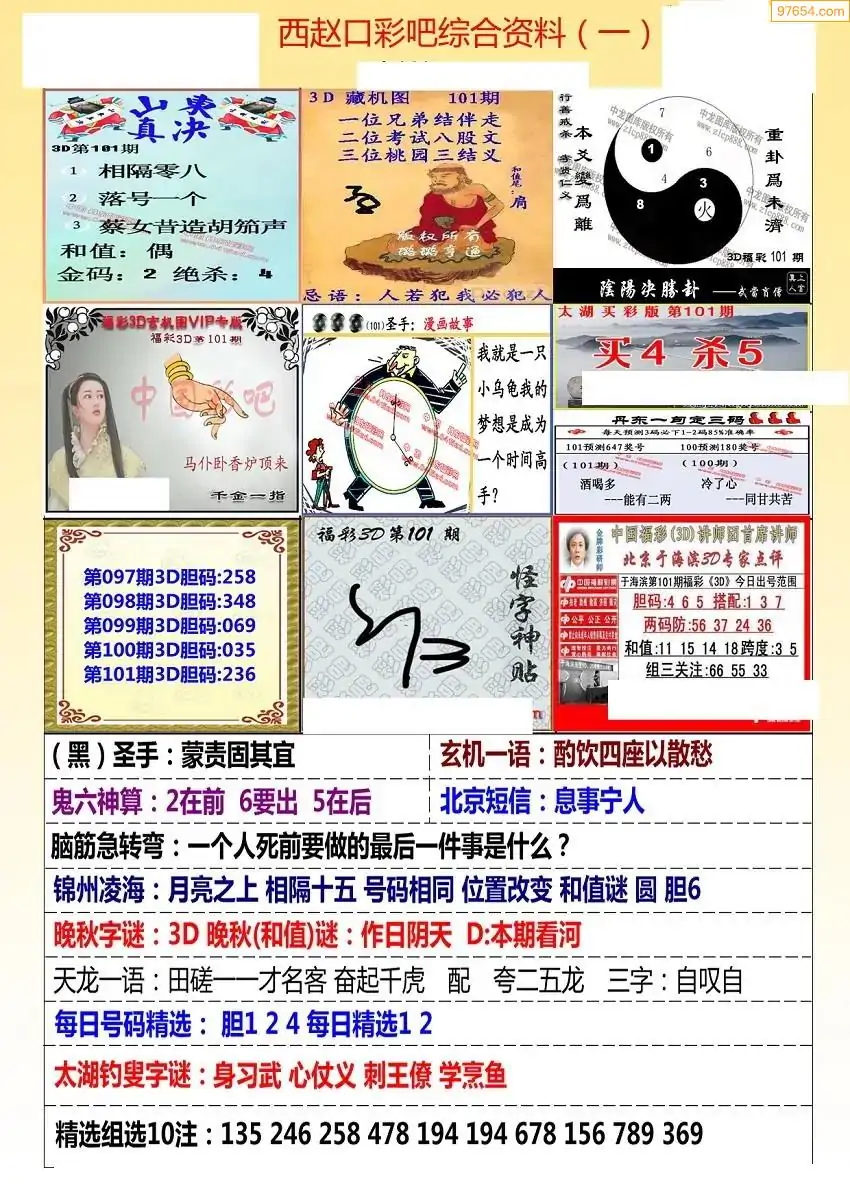 97654.com
西赵口彩吧综合资料（一）
山夷
真决
3D第101期
1 相隔零八
2 落号一个
3 蔡女昔造胡笳声
和值：偶
金码：2 绝杀：4
3D 藏机图 101期
一位兄弟结伴走
二位考试八股文
三位桃园三结义
和值尾：肩
版权所有
忌语：人若犯我必犯人
行善戒杀
本爻變爲離
重卦爲未濟
7
1
6
4
3
8
火
3D福彩101期
陰陽决勝卦
福彩3D玄机图VIP专版
福彩3D第101期
中国彩吧
马仆卧香炉顶来
千金一指
(101)圣手：漫画故事
我就是一只
小乌龟我的
梦想是成为
一个时间高
手？
太湖买彩版 第101期
买4 杀5
丹东一句定三码
每天预测3码必下1-2码85%准确率
101预测647奖号 100预测180奖号
(101期) (100期)
酒喝多 冷了心
---能有二两 ---同甘共苦
第097期3D胆码:258
第098期3D胆码:348
第099期3D胆码:069
第100期3D胆码:035
第101期3D胆码:236
福彩3D第101期
怪字神贴
金牌彩研师
中国福彩(3D)讲师团首席讲师
北京于海滨3D专家点评
中国福利彩票
于海滨第101期福彩《3D》今日出号范围
胆码:4 6 5 搭配:1 3 7
两码防:56 37 24 36
和值:11 15 14 18跨度:3 5
组三关注:66 55 33
公平 公正 公开
（黑）圣手：蒙责固其宜
玄机一语：酌饮四座以散愁
鬼六神算：2在前 6要出 5在后
北京短信：息事宁人
脑筋急转弯：一个人死前要做的最后一件事是什么？
锦州凌海：月亮之上 相隔十五 号码相同 位置改变 和值谜 圆 胆6
晚秋字谜：3D 晚秋(和值)谜：作日阴天 D:本期看河
天龙一语：田磋一一才名客 奋起千虎 配 夸二五龙 三字：自叹自
每日号码精选： 胆1 2 4 每日精选1 2
太湖钓叟字谜：身习武 心仗义 刺王僚 学烹鱼
精选组选10注：135 246 258 478 194 194 678 156 789 369